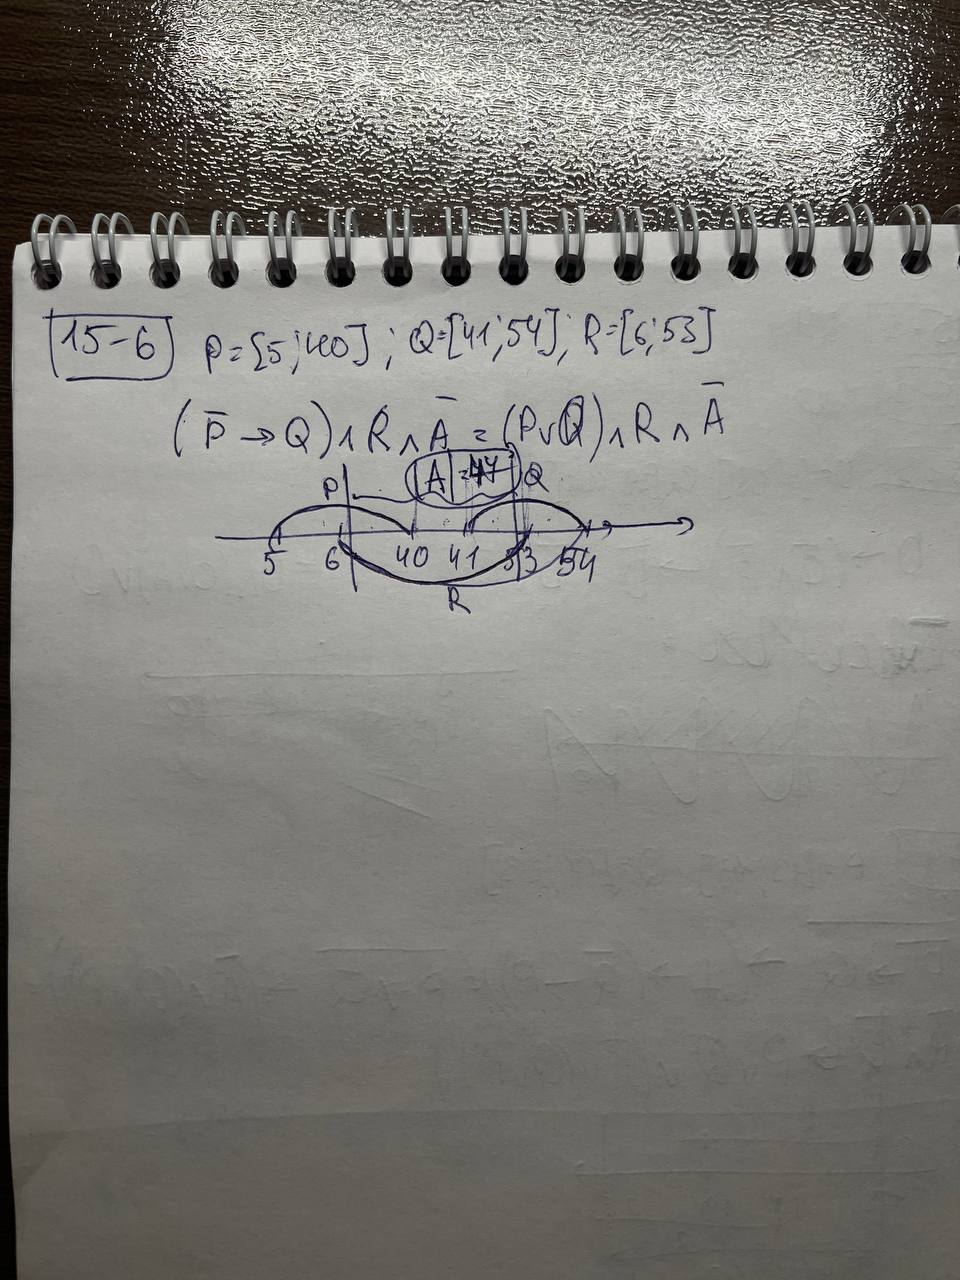 15-6 P=[5;40]; Q=[41;54]; R=[6;53]
(P̅ → Q) ∧ R ∧ A̅ = (P∨Q) ∧ R ∧ A̅
|A| = 47
P Q
5 6 40 41 53 54
R